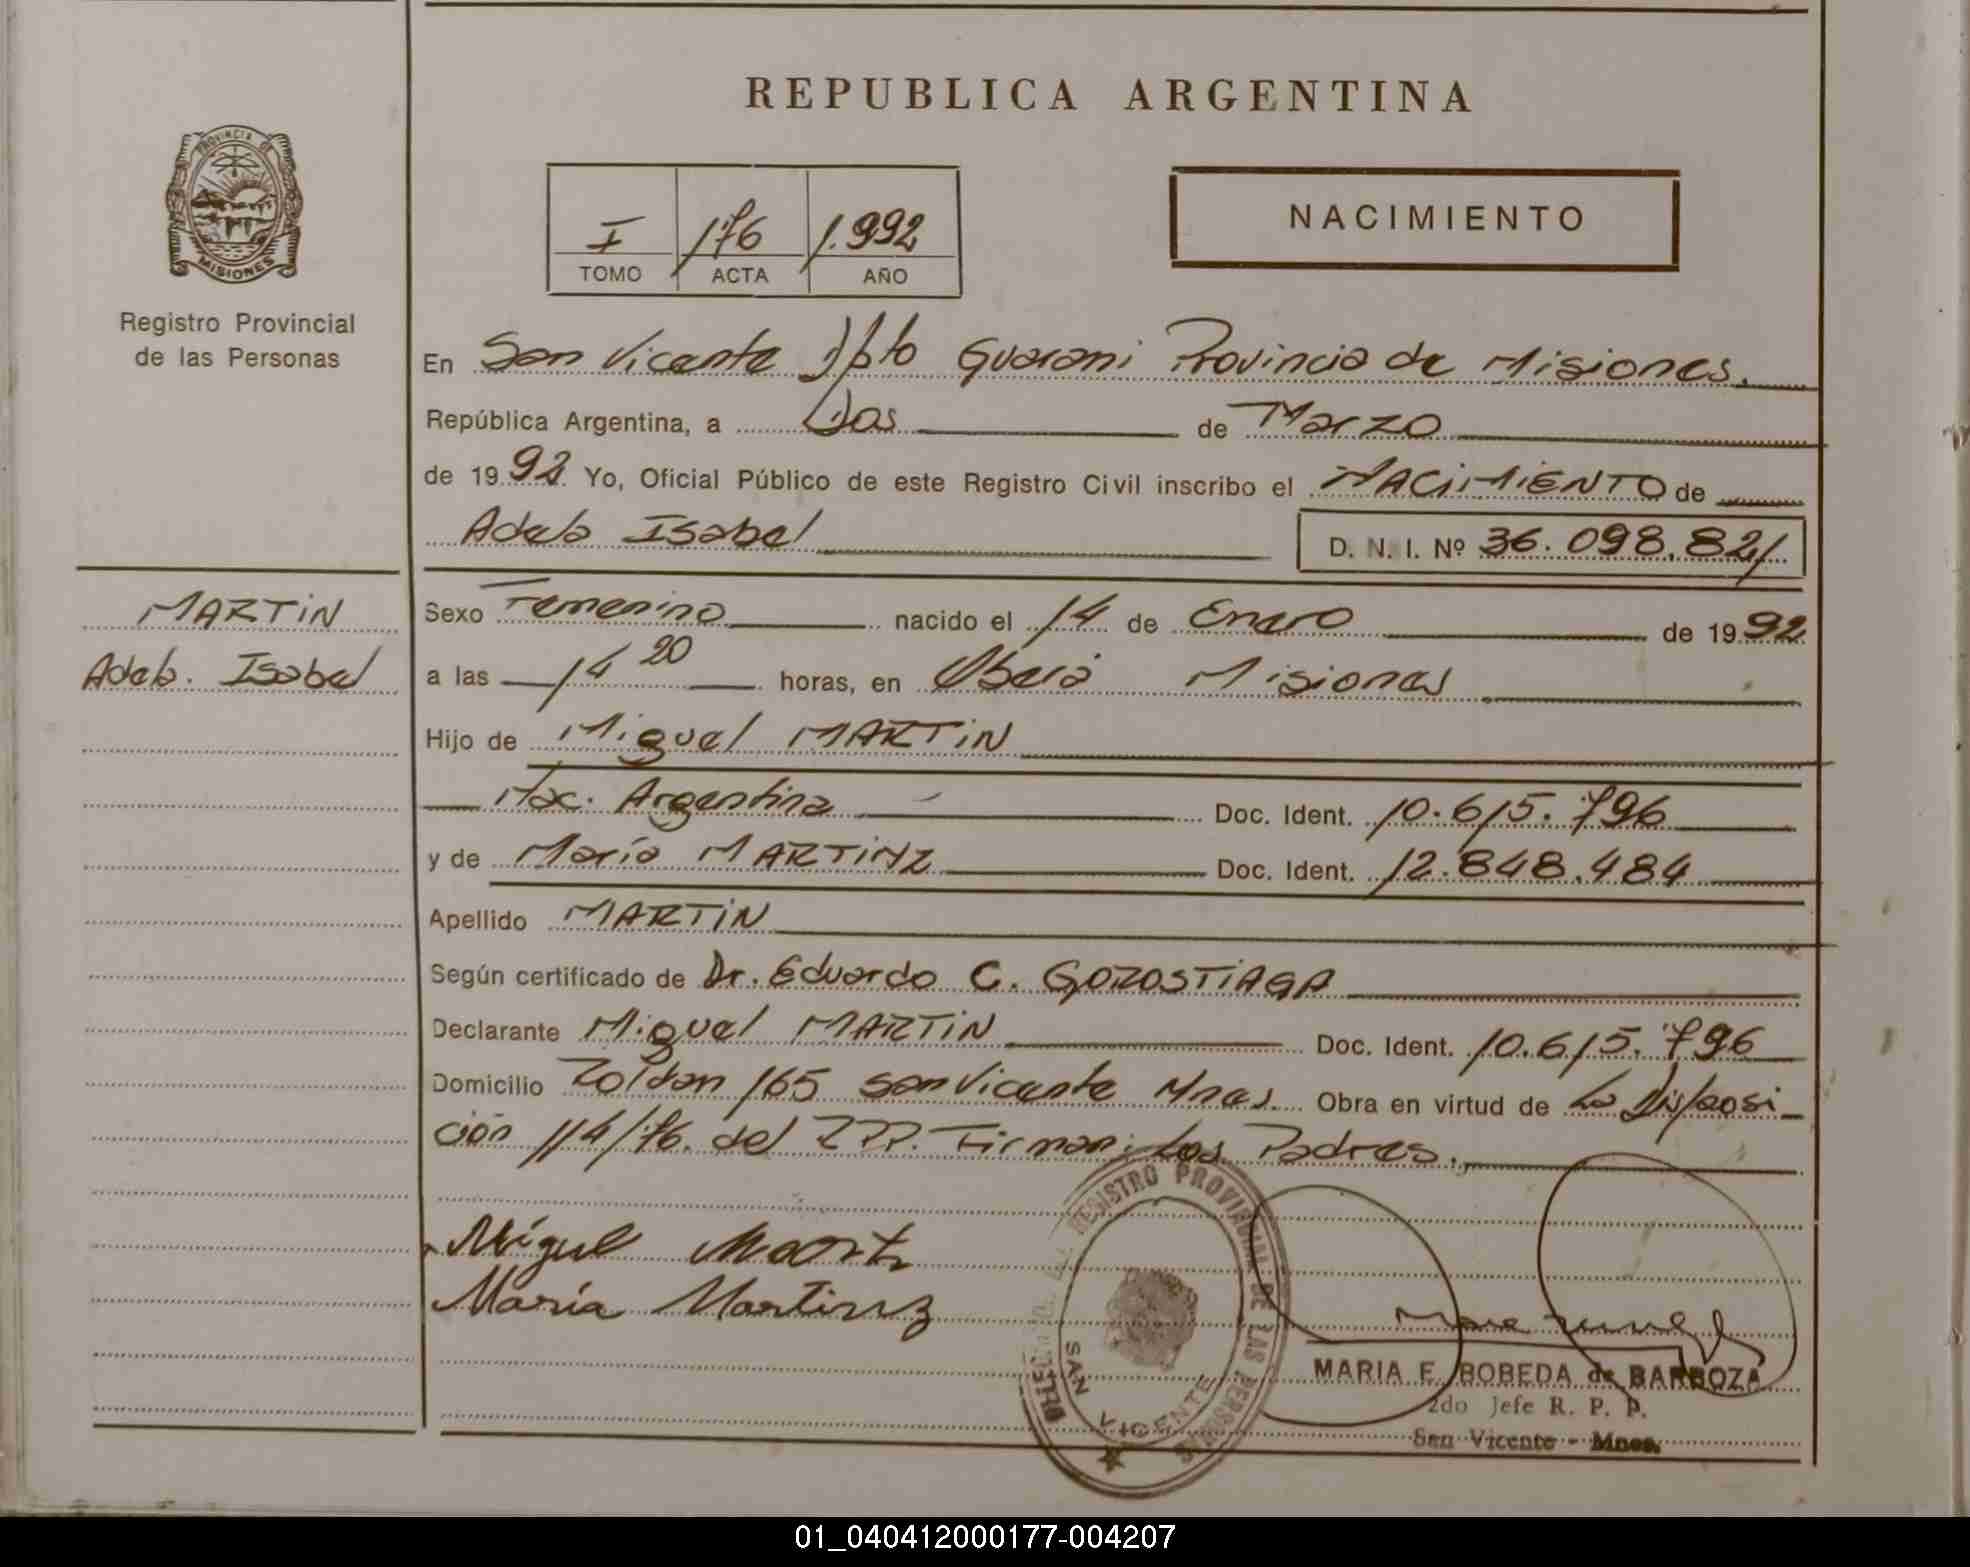 REPUBLICA ARGENTINA
PROVINCIA DE
MISIONES
Registro Provincial
de las Personas
I 176 1.992
TOMO ACTA AÑO
NACIMIENTO
En San Vicente Dpto Guarani Provincia de Misiones.
República Argentina, a Dos de Marzo
de 1992. Yo, Oficial Público de este Registro Civil inscribo el NACIMIENTO de
Adela Isabel D. N. I. Nº 36.098.821
MARTIN
Adela. Isabel
Sexo Femenino nacido el 14 de Enero de 1992
a las 14 20 horas, en Oberá Misiones
Hijo de Miguel MARTIN
Nac. Argentina Doc. Ident. 10.615.796
y de María MARTINZ Doc. Ident. 12.848.484
Apellido MARTIN
Según certificado de Dr. Eduardo C. GOROSTIAGA
Declarante Miguel MARTIN Doc. Ident. 10.615.796
Domicilio Roldan 165 San Vicente Mnes. Obra en virtud de La Disposi-
ción 114/76. del RPP. Firman: Los Padres.
Miguel
María
REGISTRO PROVINCIAL DE LAS PERSONAS
SAN VICENTE
MARIA E. BOBEDA de BARBOZA
2do Jefe R. P. P.
San Vicente - Mnes.
01_040412000177-004207